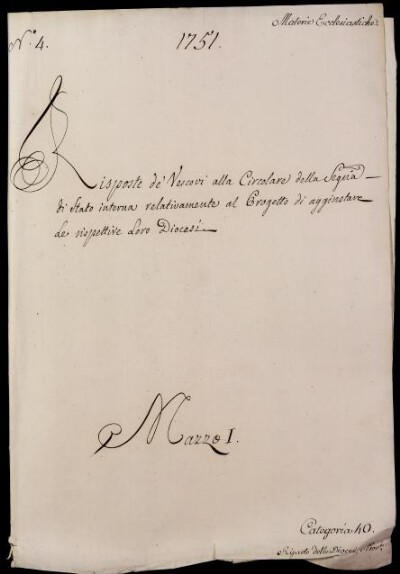 Materie Ecclesiastiche
N.° 4.
1751.
Risposte de' Vescovi alla Circolare della Segria
di Stato interna relativamente al Progetto di aggiustare
le rispettive Loro Diocesi
Mazzo I.
Categoria 40.
Riparto delle Diocesi